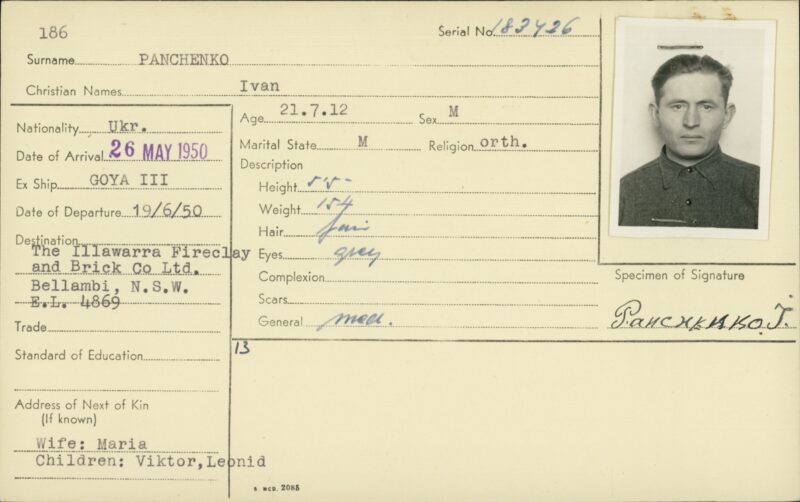 186
Serial No. 183426
Surname PANCHENKO
Christian Names Ivan
Nationality Ukr.
Date of Arrival 26 MAY 1950
Ex Ship GOYA III
Date of Departure 19/6/50
Destination
The Illawarra Fireclay
and Brick Co Ltd.
Bellambi, N.S.W.
E.L. 4869
Trade
Standard of Education
Address of Next of Kin
(If known)
Wife: Maria
Children: Viktor,Leonid
Age 21.7.12 Sex M
Marital State M Religion orth.
Description
Height 5'5"
Weight 154
Hair fair
Eyes grey
Complexion
Scars
General med.
13
Specimen of Signature
PANCHENKO. J.
S. MCD. 2085